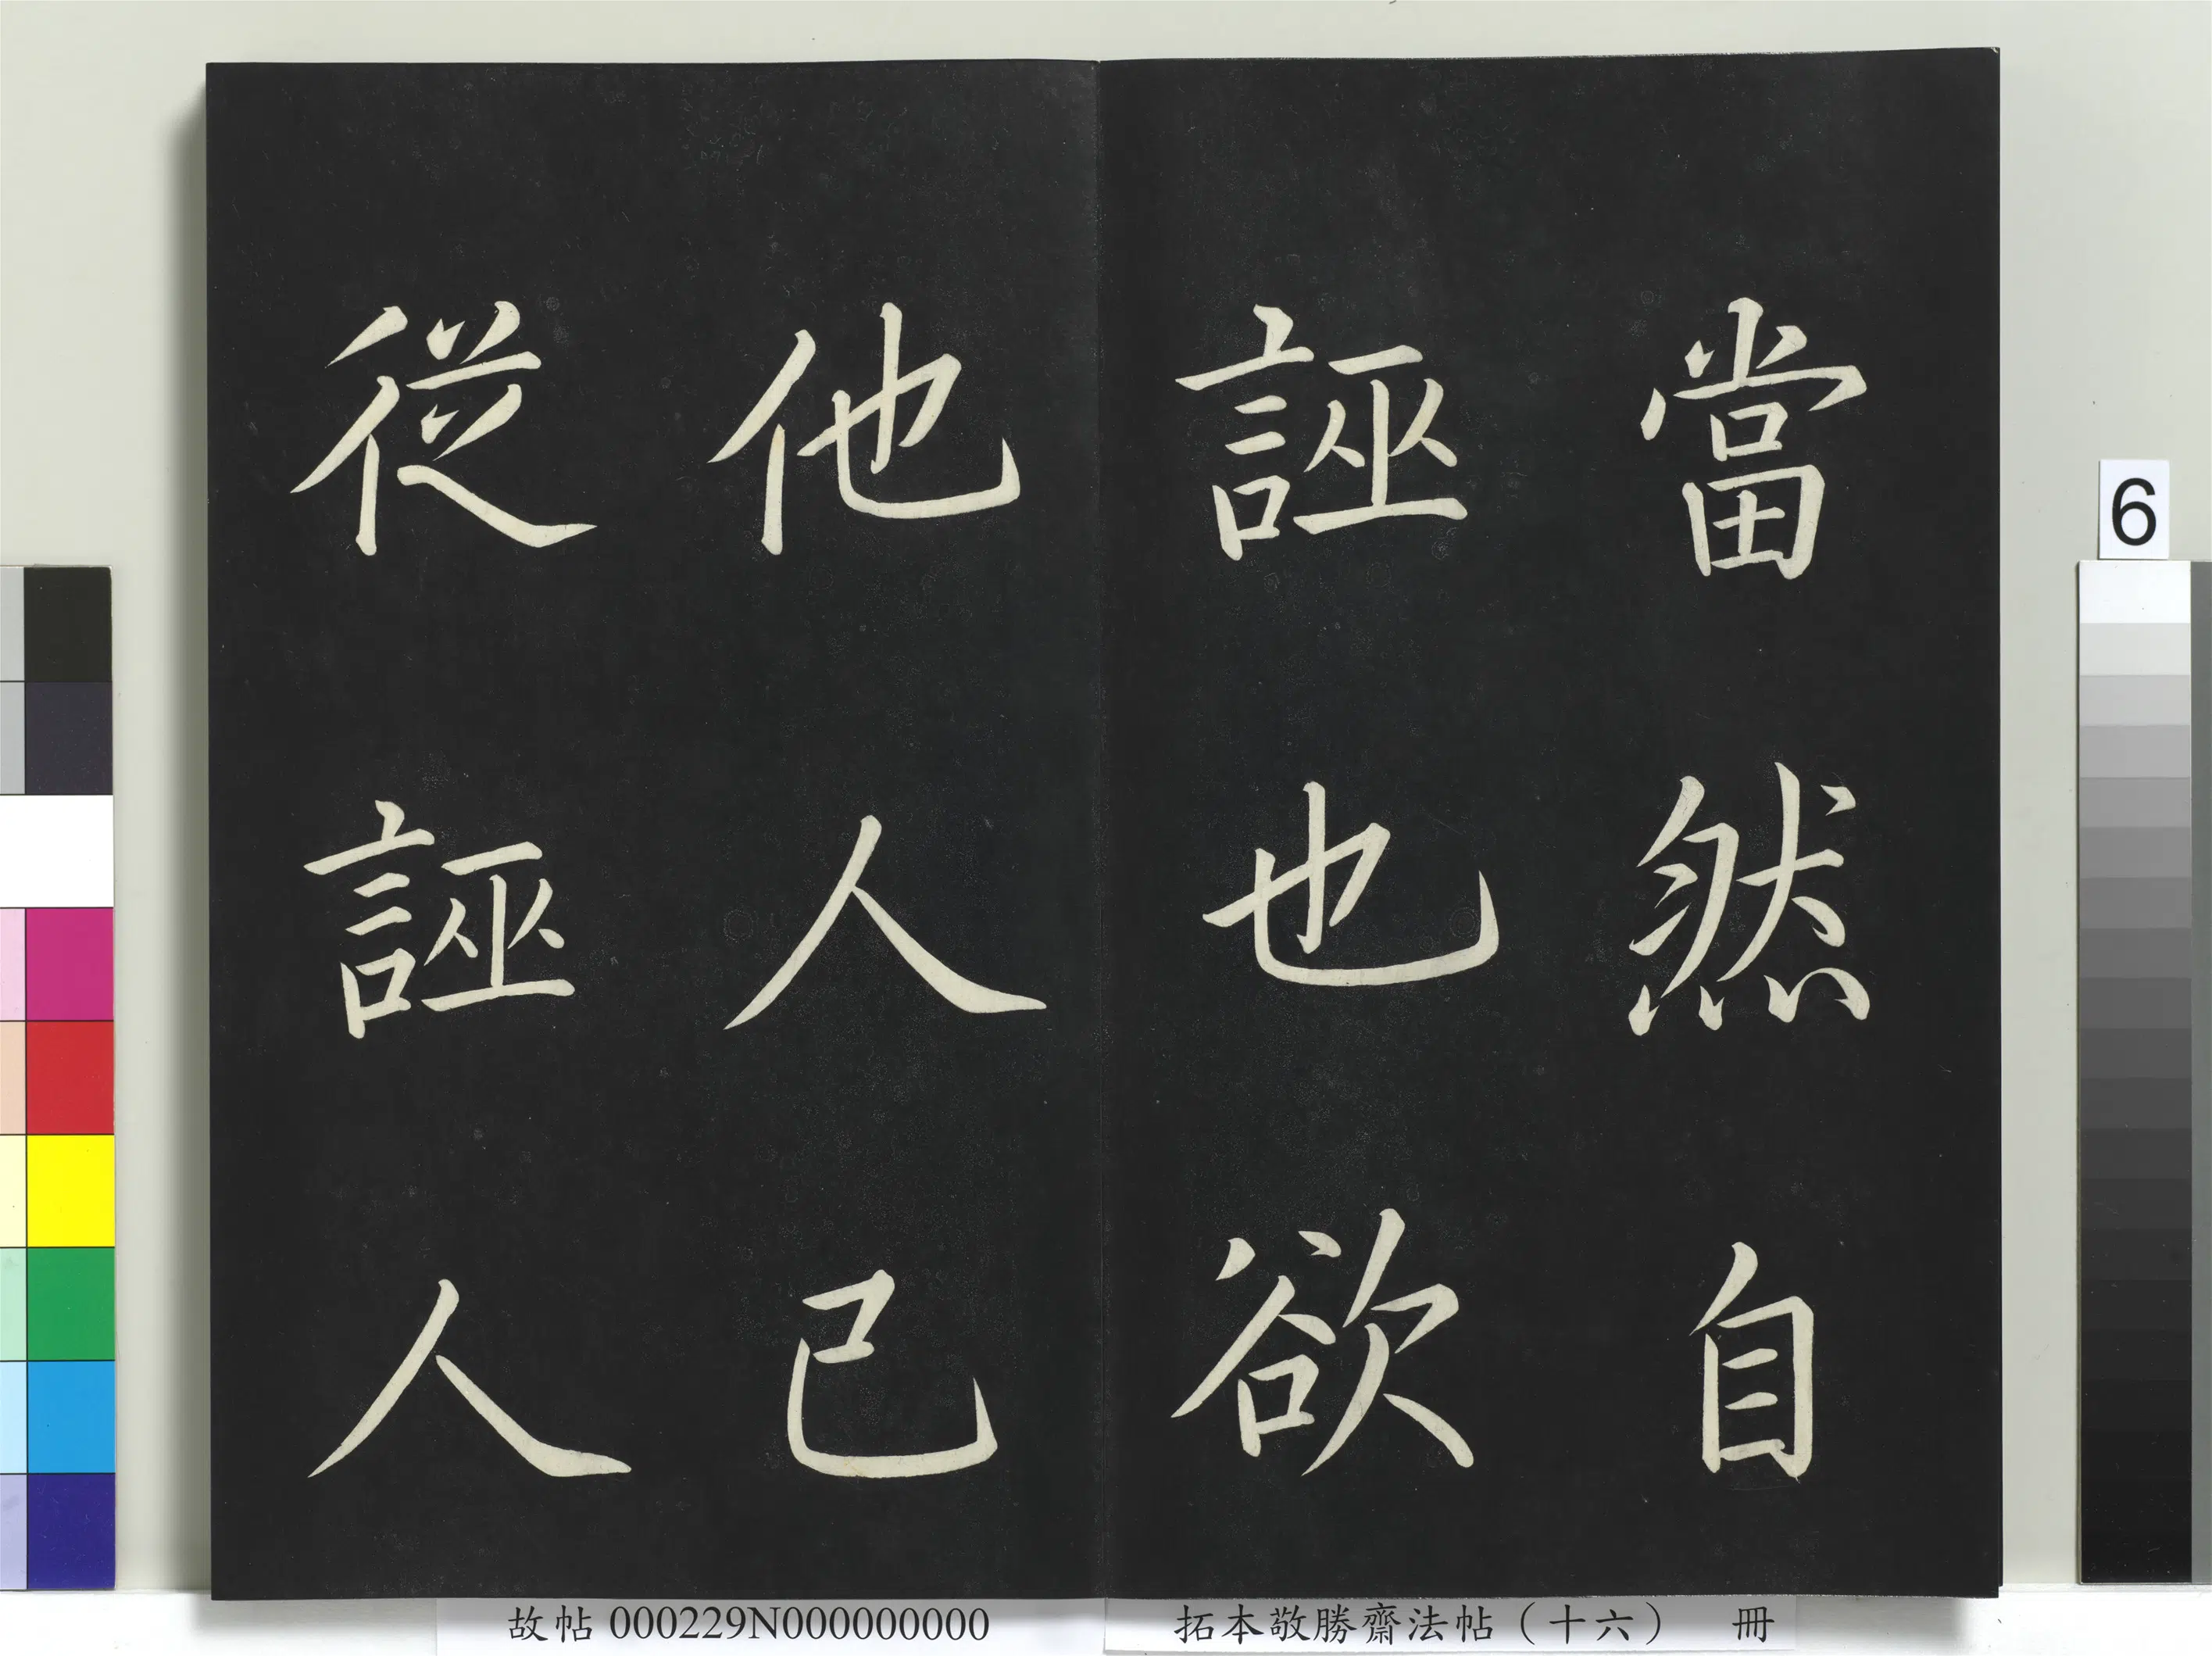 當然自
誣也欲
他人已
從誣人
6
故帖 000229N000000000
拓本敬勝齋法帖（十六） 冊